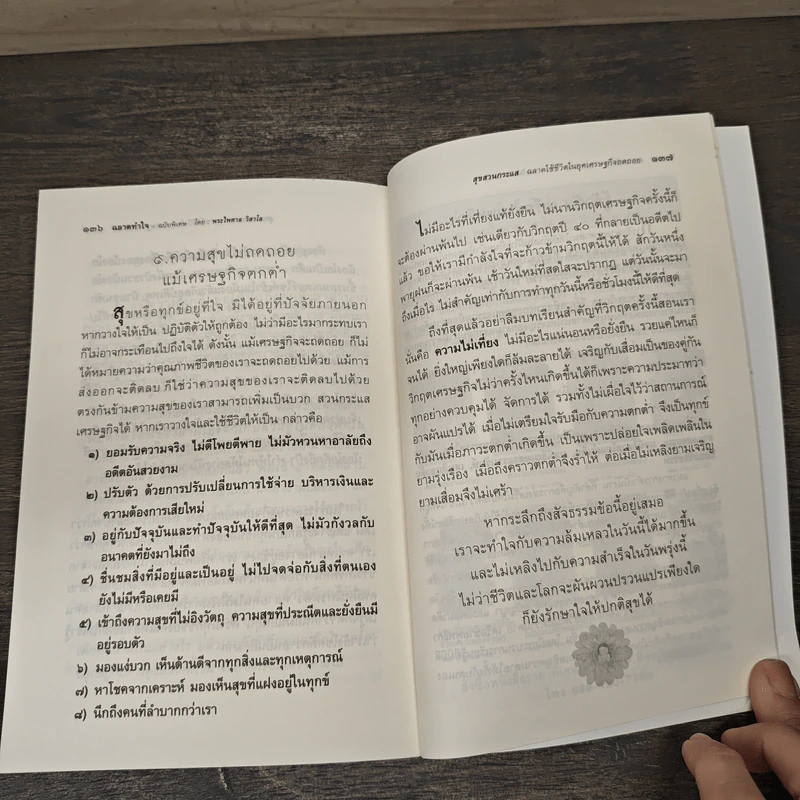 ๑๓๖ ฉลาดทำใจ ฉบับพิเศษ โดย : พระไพศาล วิสาโล
๙.ความสุขไม่ถดถอย
แม้เศรษฐกิจตกต่ำ
สุขหรือทุกข์อยู่ที่ใจ มิได้อยู่ที่ปัจจัยภายนอก
หากวางใจให้เป็น ปฏิบัติตัวให้ถูกต้อง ไม่ว่ามีอะไรมากระทบเรา
ก็ไม่อาจกระเทือนไปถึงใจได้ ดังนั้น แม้เศรษฐกิจจะถดถอย ก็ไม่
ได้หมายความว่าคุณภาพชีวิตของเราจะถดถอยไปด้วย แม้การ
ส่งออกจะติดลบ ก็ใช่ว่าความสุขของเราจะติดลบไปด้วย
ตรงกันข้ามความสุขของเราสามารถเพิ่มเป็นบวก สวนกระแส
เศรษฐกิจได้ หากเราวางใจและใช้ชีวิตให้เป็น กล่าวคือ
๑) ยอมรับความจริง ไม่ตีโพยตีพาย ไม่มัวหวนหาอาลัยถึง
อดีตอันสวยงาม
๒) ปรับตัว ด้วยการปรับเปลี่ยนการใช้จ่าย บริหารเงินและ
ความต้องการเสียใหม่
๓) อยู่กับปัจจุบันและทำปัจจุบันให้ดีที่สุด ไม่มัวกังวลกับ
อนาคตที่ยังมาไม่ถึง
๔) ชื่นชมสิ่งที่มีอยู่และเป็นอยู่ ไม่ไปจดจ่อกับสิ่งที่ตนเอง
ยังไม่มีหรือเคยมี
๕) เข้าถึงความสุขที่ไม่อิงวัตถุ ความสุขที่ประณีตและยั่งยืนมี
อยู่รอบตัว
๖) มองแง่บวก เห็นด้านดีจากทุกสิ่งและทุกเหตุการณ์
๗) หาโชคจากเคราะห์ มองเห็นสุขที่แฝงอยู่ในทุกข์
๘) นึกถึงคนที่ลำบากกว่าเรา
สุขสวนกระแส ฉลาดใช้ชีวิตในยุคเศรษฐกิจถดถอย ๑๓๗
ไม่มีอะไรที่เที่ยงแท้ยั่งยืน ไม่นานวิกฤตเศรษฐกิจครั้งนี้ก็
จะต้องผ่านพ้นไป เช่นเดียวกับวิกฤตปี ๔๐ ที่กลายเป็นอดีตไป
แล้ว ขอให้เรามีกำลังใจที่จะก้าวข้ามวิกฤตนี้ให้ได้ สักวันหนึ่ง
พายุฝนก็จะผ่านพ้น เช้าวันใหม่ที่สดใสจะปรากฏ แต่วันนั้นจะมา
ถึงเมื่อไร ไม่สำคัญเท่ากับการทำทุกวันนี้หรือชั่วโมงนี้ให้ดีที่สุด
ถึงที่สุดแล้วอย่าลืมบทเรียนสำคัญที่วิกฤตครั้งนี้สอนเรา
นั่นคือ ความไม่เที่ยง ไม่มีอะไรแน่นอนหรือยั่งยืน รวยแค่ไหนก็
จนได้ ยิ่งใหญ่เพียงใดก็ล้มละลายได้ เจริญกับเสื่อมเป็นของคู่กัน
วิกฤตเศรษฐกิจไม่ว่าครั้งไหนเกิดขึ้นได้ก็เพราะความประมาทว่า
ทุกอย่างควบคุมได้ จัดการได้ รวมทั้งไม่เผื่อใจไว้ว่าสถานการณ์
อาจผันแปรได้ เมื่อไม่เตรียมใจรับมือกับความตกต่ำ จึงเป็นทุกข์
กับมันเมื่อภาวะตกต่ำเกิดขึ้น เป็นเพราะปล่อยใจเพลิดเพลินใน
ยามรุ่งเรือง เมื่อถึงคราวตกต่ำจึงร่ำไห้ ต่อเมื่อไม่เหลิงยามเจริญ
ยามเสื่อมจึงไม่เศร้า
หากระลึกถึงสัจธรรมข้อนี้อยู่เสมอ
เราจะทำใจกับความล้มเหลวในวันนี้ได้มากขึ้น
และไม่เหลิงไปกับความสำเร็จในวันพรุ่งนี้
ไม่ว่าชีวิตและโลกจะผันผวนปรวนแปรเพียงใด
ก็ยังรักษาใจให้ปกติสุขได้